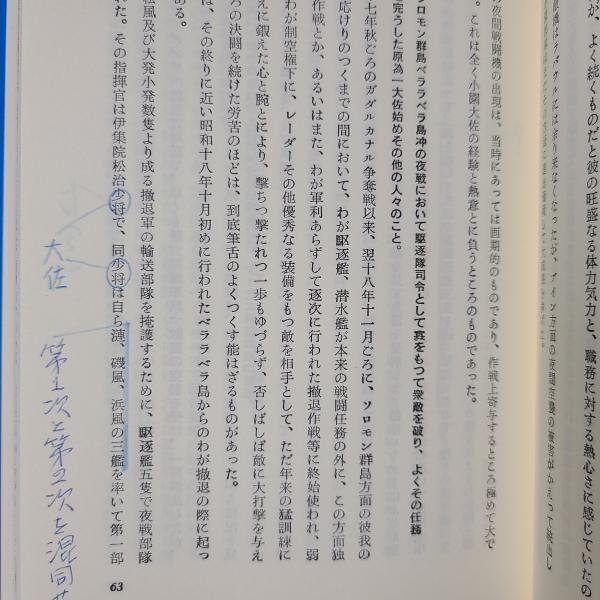 が、よく続くものだと彼の旺盛なる体力気力と、職務に対する熱心さに感じていたの
の夜間戦闘機の出現は、当時にあっては画期的のものであり、作戦上寄与するところ極めて大で
。これは全く小園大佐の経験と熱意とに負うところのものであった。
ソロモン群島ベララベラ島沖の夜戦において駆逐隊司令として寡をもつて衆敵を破り、よくその任務
を完うした原為一大佐始めその他の人々のこと。
七年秋ごろのガダルカナル争奪戦以来、翌十八年十一月ごろに、ソロモン群島方面の彼我の
応けりのつくまでの間において、わが駆逐艦、潜水艦が本来の戦闘任務の外に、この方面独
作戦とか、あるいはまた、わが軍利あらずして逐次に行われた撤退作戦等に終始使われ、弱
わが制空権下に、レーダーその他優秀なる装備をもつ敵を相手として、ただ年来の猛訓練に
えに鍛えた心と腕とにより、撃ちつ撃たれつ一歩もゆづらず、否しばしば敵に大打撃を与え
ろの決闘を続けた労苦のほどは、到底筆舌のよくつくす能はざるものがあった。
は、その終りに近い昭和十八年十月初めに行われたベララベラ島からのわが撤退の際に起っ
ある。
松風及び大発小発数隻より成る撤退軍の輸送部隊を掩護するために、駆逐艦五隻で夜戦部隊
れた。その指揮官は伊集院松治少将で、同少将は自ら漣、磯風、浜風の三艦を率いて第一部
大佐
第1次と第2次を混同
63